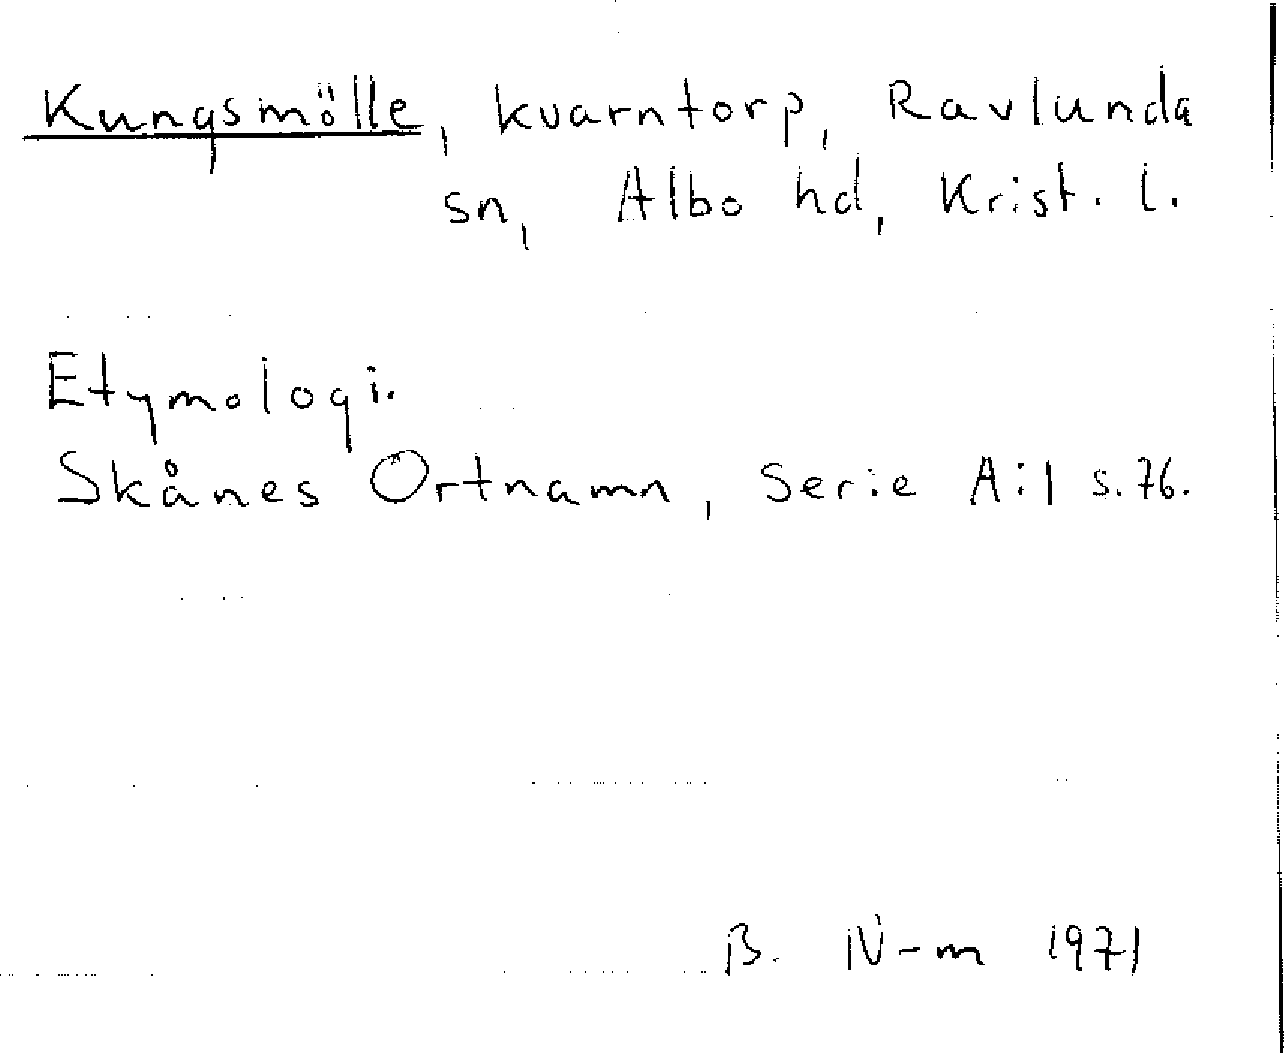 Kungsmölle, kvarntorp, Ravlunda
sn, Albo hd, Krist. l.
Etymologi.
Skånes Ortnamn, Serie A:1 s.76.
B. N-m 1971